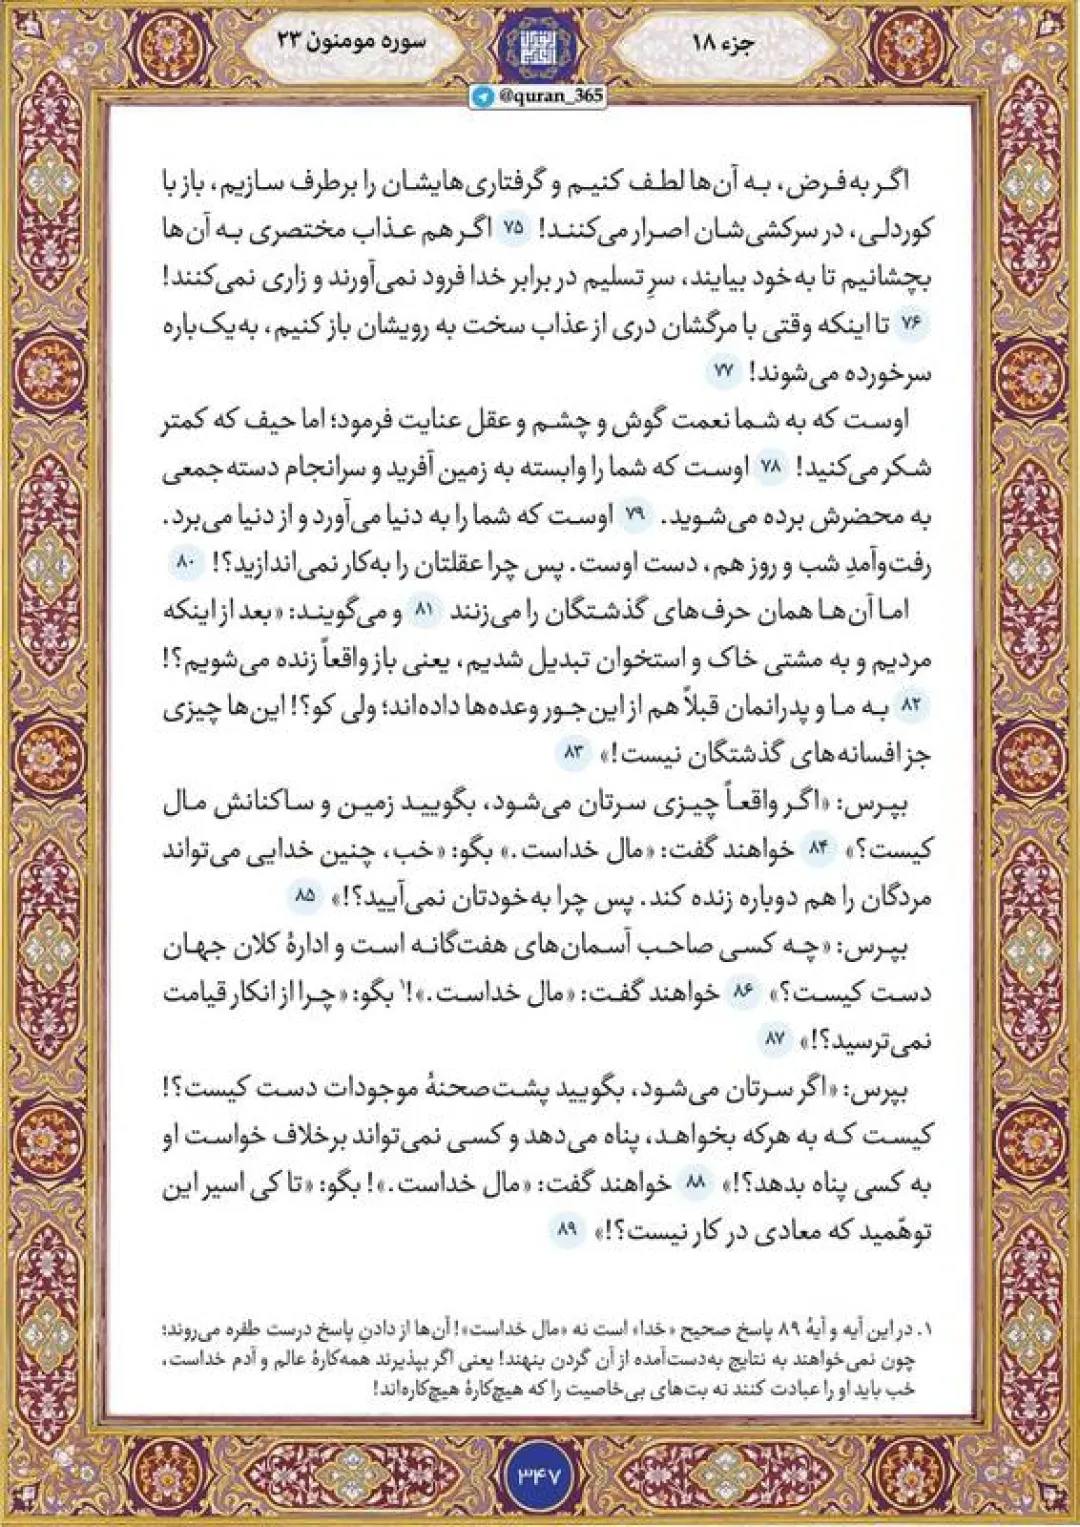 جزء ۱۸
سوره مومنون ۲۳
@quran_365
اگر به‌فرض، به آن‌ها لطف کنیم و گرفتاری‌هایشان را برطرف سازیم، باز با
کوردلی، در سرکشی‌شان اصرار می‌کنند! ۷۵ اگر هم عذاب مختصری به آن‌ها
بچشانیم تا به‌خود بیایند، سرِ تسلیم در برابر خدا فرود نمی‌آورند و زاری نمی‌کنند!
۷۶ تا اینکه وقتی با مرگشان دری از عذاب سخت به رویشان باز کنیم، به‌یک‌باره
سرخورده می‌شوند! ۷۷
اوست که به شما نعمت گوش و چشم و عقل عنایت فرمود؛ اما حیف که کمتر
شکر می‌کنید! ۷۸ اوست که شما را وابسته به زمین آفرید و سرانجام دسته‌جمعی
به محضرش برده می‌شوید. ۷۹ اوست که شما را به دنیا می‌آورد و از دنیا می‌برد.
رفت‌وآمدِ شب و روز هم، دست اوست. پس چرا عقلتان را به‌کار نمی‌اندازید؟! ۸۰
اما آن‌ها همان حرف‌های گذشتگان را می‌زنند ۸۱ و می‌گویند: «بعد از اینکه
مردیم و به مشتی خاک و استخوان تبدیل شدیم، یعنی باز واقعاً زنده می‌شویم؟!
۸۲ به ما و پدرانمان قبلاً هم از این‌جور وعده‌ها داده‌اند؛ ولی کو؟! این‌ها چیزی
جز افسانه‌های گذشتگان نیست!» ۸۳
بپرس: «اگر واقعاً چیزی سرتان می‌شود، بگویید زمین و ساکنانش مال
کیست؟» ۸۴ خواهند گفت: «مال خداست.» بگو: «خب، چنین خدایی می‌تواند
مردگان را هم دوباره زنده کند. پس چرا به‌خودتان نمی‌آیید؟!» ۸۵
بپرس: «چه کسی صاحب آسمان‌های هفت‌گانه است و ادارهٔ کلان جهان
دست کیست؟» ۸۶ خواهند گفت: «مال خداست.»!۱ بگو: «چرا از انکار قیامت
نمی‌ترسید؟!» ۸۷
بپرس: «اگر سرتان می‌شود، بگویید پشت‌صحنهٔ موجودات دست کیست؟!
کیست که به هرکه بخواهد، پناه می‌دهد و کسی نمی‌تواند برخلاف خواست او
به کسی پناه بدهد؟!» ۸۸ خواهند گفت: «مال خداست.»! بگو: «تا کی اسیر این
توهّمید که معادی در کار نیست؟!» ۸۹
۱. در این آیه و آیهٔ ۸۹ پاسخ صحیح «خدا» است نه «مال خداست»! آن‌ها از دادن پاسخ درست طفره می‌روند؛
چون نمی‌خواهند به نتایج به‌دست‌آمده از آن گردن بنهند! یعنی اگر بپذیرند همه‌کارهٔ عالم و آدم خداست،
خب باید او را عبادت کنند نه بت‌های بی‌خاصیت را که هیچ‌کارهٔ هیچ‌کاره‌اند!
۳۴۷